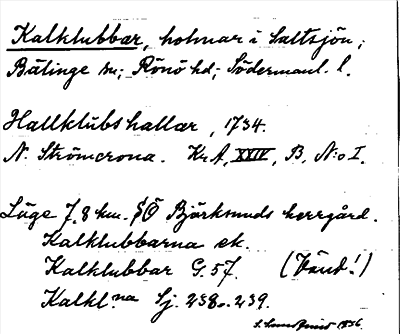 Kalklubbar, holmar i Saltsjön;
Bälinge sn; Rönö hd; Södermanl. l.
Hallklubshallar, 1734.
N. Strömcrona. Kr. A, XXIV, B, N:o I.
Läge 7,8 km. SÖ Björksunds herrgård.
Kalklubbarna ek.
Kalklubbar G. 57. (Känd!)
Kalkl.na Sj. 238 o. 239.
1936.